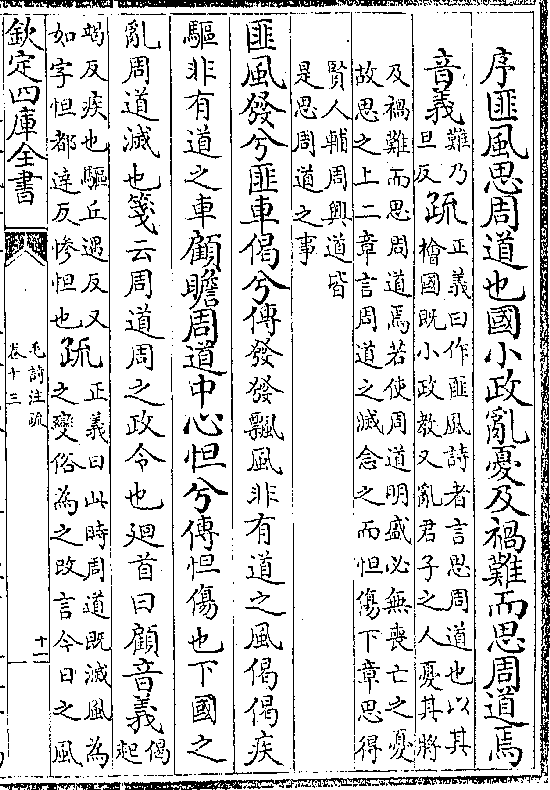 序匪風思周道也國小政亂憂及禍難而思周道焉
音義
難乃
旦反
疏
正義曰作匪風詩者言思周道也以其
檜國既小政教又亂君子之人憂其將
及禍難而思周道焉若使周道明盛必無喪亡之憂
故思之上二章言周道之滅念之而怛傷下章思得
賢人輔周興道皆
是思周道之事
匪風發兮匪車偈兮傳發發飄風非有道之風偈偈疾
驅非有道之車顧瞻周道中心怛兮傳怛傷也下國之
亂周道滅也箋云周道周之政令也廻首曰顧音義
偈
起
竭反疾也驅丘遇反又
如字怛都達反慘怛也
疏
正義曰此時周道既滅風為
之變俗為之改言今日之風
欽定四庫全書
毛詩注疏
卷十三
十一